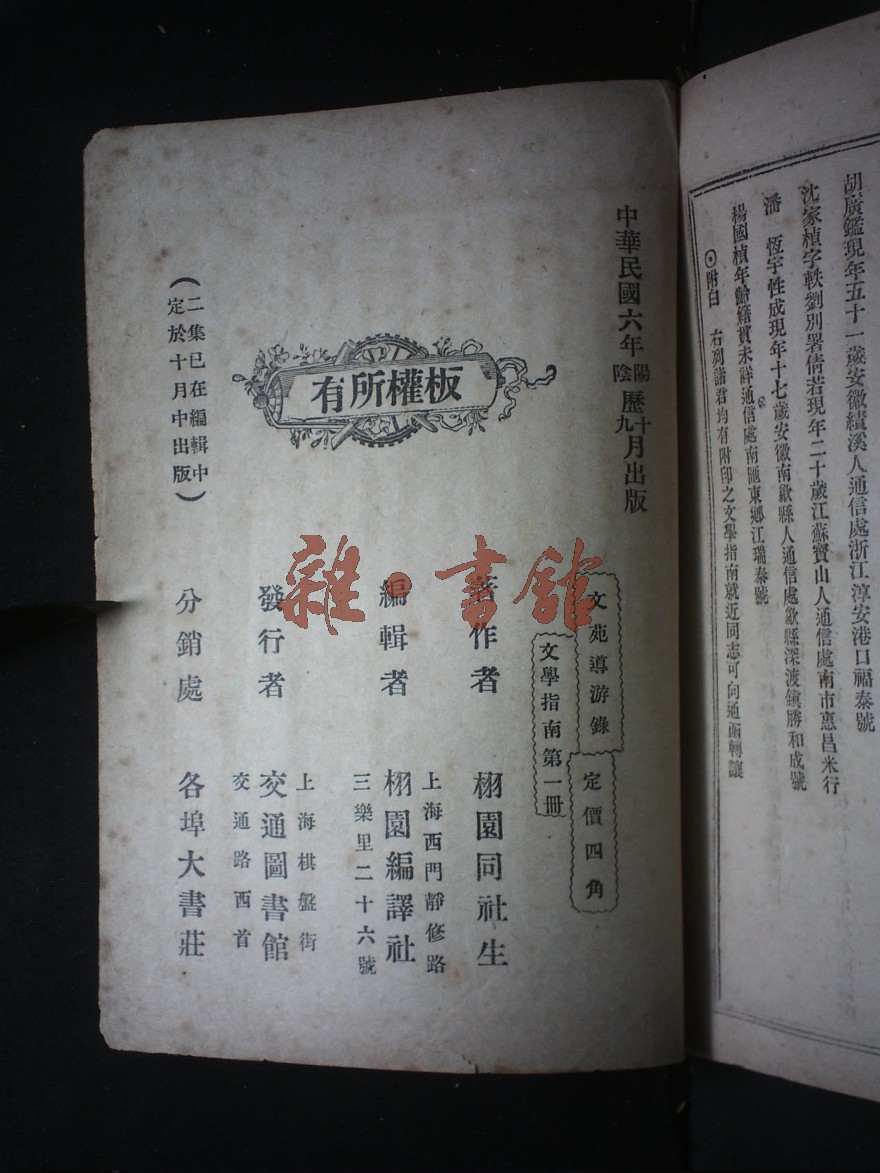 胡廣鑑現年五十一歲安徽績溪人通信處浙江淳安港口福泰號
沈家楨字軼劉別署倩若現年二十歲江蘇寶山人通信處南市惠昌米行
潘　恆宇性成現年十七歲安徽南歙縣人通信處歙縣深渡鎮勝和成號
楊國楨年齡籍貫未詳通信處南匯東鄉江瑞泰號
⊙附白　右列諸君均有附印之文學指南就近同志可向通函轉讓
中華民國六年陽陰歷十九月出版
板權所有
（二集已在編輯中
定於十月中出版）
文苑導游錄
定價四角
文學指南第一冊
著作者　栩園同社生
編輯者　上海西門靜修路
栩園編譯社
三樂里二十六號
發行者　上海棋盤街
交通圖書館
交通路西首
分銷處　各埠大書莊
雜·書館